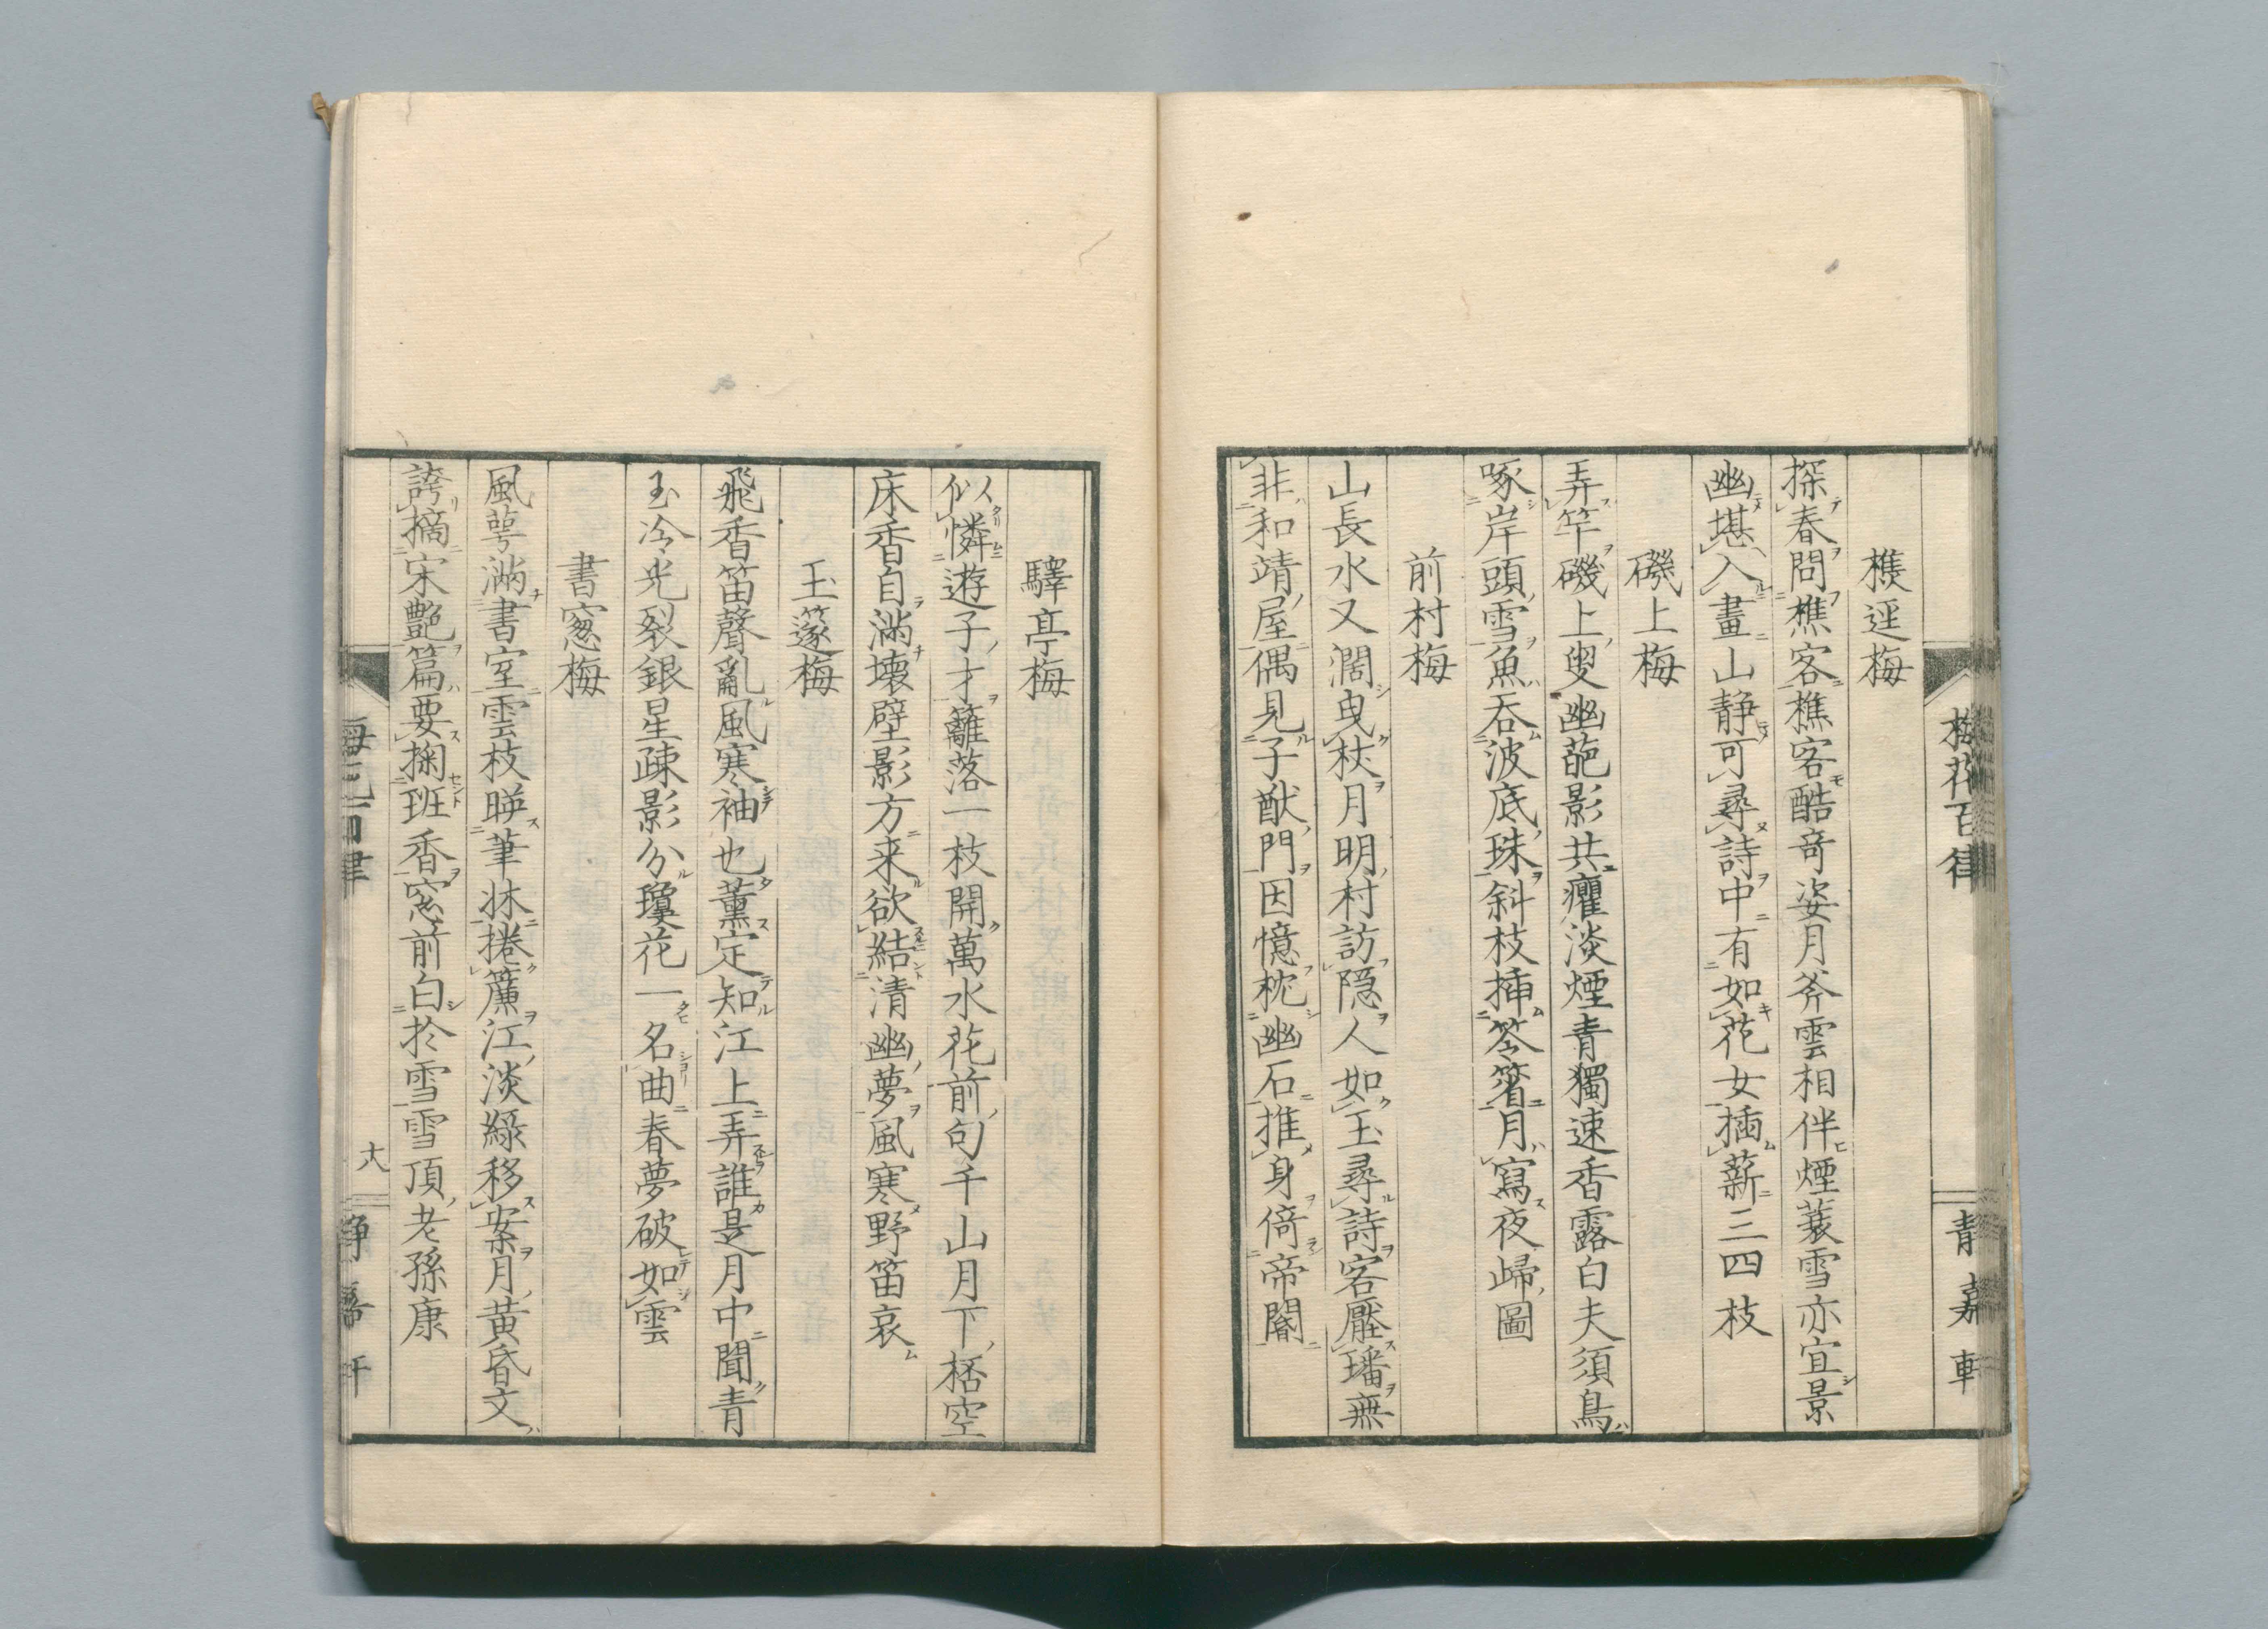 梅花百律
靜嘉軒
樵逕梅
探春問樵客樵客酷奇姿月斧雲相伴煙蓑雪亦宜景
幽堪入畫山靜可尋詩中有如花女插薪三四枝
磯上梅
弄竿磯上叟幽葩影共癯淡煙青獨速香露白夫須鳥
啄岸頭雪魚吞波底珠斜枝插笭箵月寫夜歸圖
前村梅
山長水又濶曳杖月明村訪隠人如玉尋詩客壓璠無
非和靖屋偶見子猷門因憶枕幽石推身倚帝閽
驛亭梅
似憐遊子才籬落一枝開萬水花前句千山月下桮空
床香自滿壊壁影方来欲結清幽夢風寒野笛哀
玉篴梅
飛香笛聲亂風寒袖也薰定知江上弄誰是月中聞青
玉冷光裂銀星疎影分瓊花一名曲春夢破如雲
書窻梅
風萼滿書室雲枝暎筆牀捲簾江淡綠移案月黄昏文
誇摘宋艶篇要掬班香窓前白於雪雪頂老孫康
六